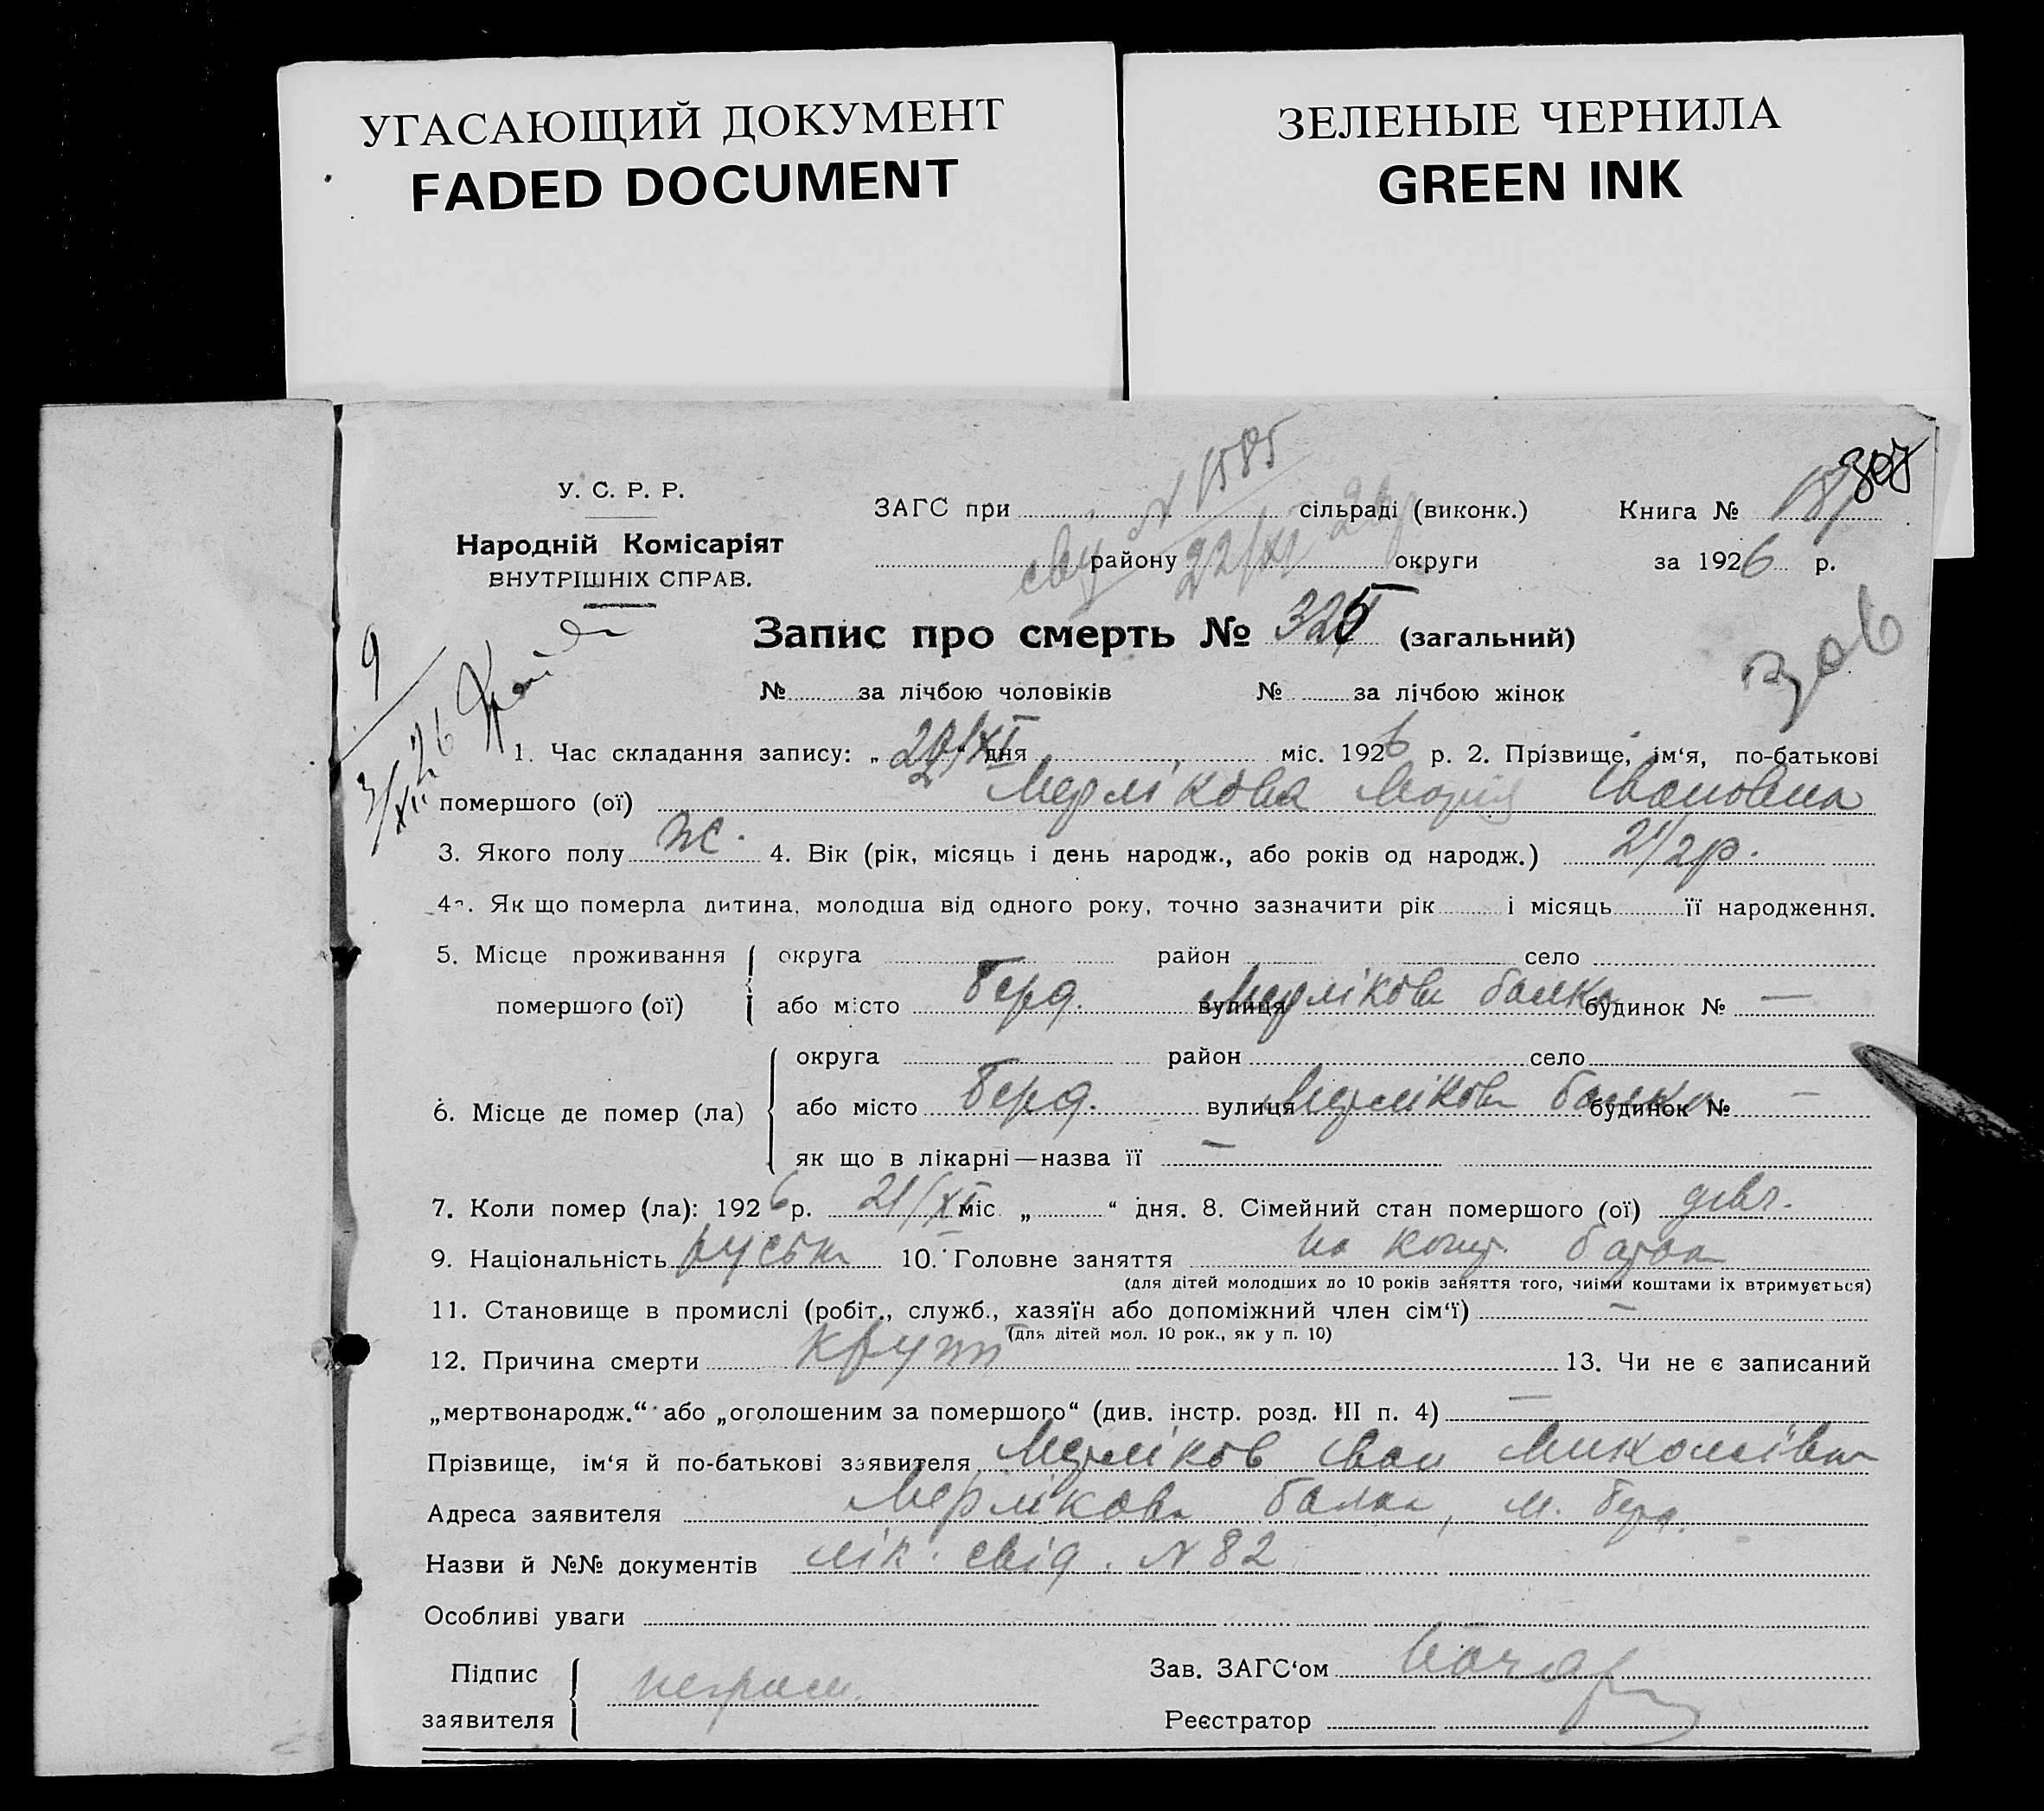 УГАСАЮЩИЙ ДОКУМЕНТ
FADED DOCUMENT
ЗЕЛЕНЫЕ ЧЕРНИЛА
GREEN INK
У. С. Р. Р.
Народній Комісаріят
ВНУТРІШНІХ СПРАВ.
ЗАГС при сільраді (виконк.) Книга № 187
району округи за 1926 р.
N 1585
22/XI 26
307
Запис про смерть № 325 (загальний)
№ за лічбою чоловіків № за лічбою жінок
1. Час складання запису: „22/XI“ дня міс. 1926 р. 2. Прізвище, ім‘я, по-батькові
помершого (ої) Мерлікова Марія Івановна
3. Якого полу ж. 4. Вік (рік, місяць і день народж., або років од народж.) 2 1/2 р.
4а. Як що померла дитина, молодша від одного року, точно зазначити рік і місяць її народження.
5. Місце проживання округа район село
помершого (ої) або місто Берд. вулиця Мерлікова балка будинок № —
округа район село
6. Місце де помер (ла) або місто Берд. вулиця Мерлікова балка будинок № —
як що в лікарні—назва її —
7. Коли помер (ла): 1926 р. 21/XI міс. „ “ дня. 8. Сімейний стан помершого (ої) дівч.
9. Національність руська 10. Головне заняття на кошт. батька
(для дітей молодших до 10 років заняття того, чиїми коштами іх втримується)
11. Становище в промислі (робіт., служб., хазяїн або допоміжний член сім‘ї) —
(для дітей мол. 10 рок., як у п. 10)
12. Причина смерти круп 13. Чи не є записаний
„мертвонародж.“ або „оголошеним за помершого“ (див. інстр. розд. III п. 4) —
Прізвище, ім‘я й по-батькові заявителя Мерліков Іван Миколаїв
Адреса заявителя Мерлікова балка, м. Берд.
Назви й №№ документів лік. свід. N 82
Особливі уваги
Підпис
заявителя неграм.
Зав. ЗАГС‘ом
Реєстратор